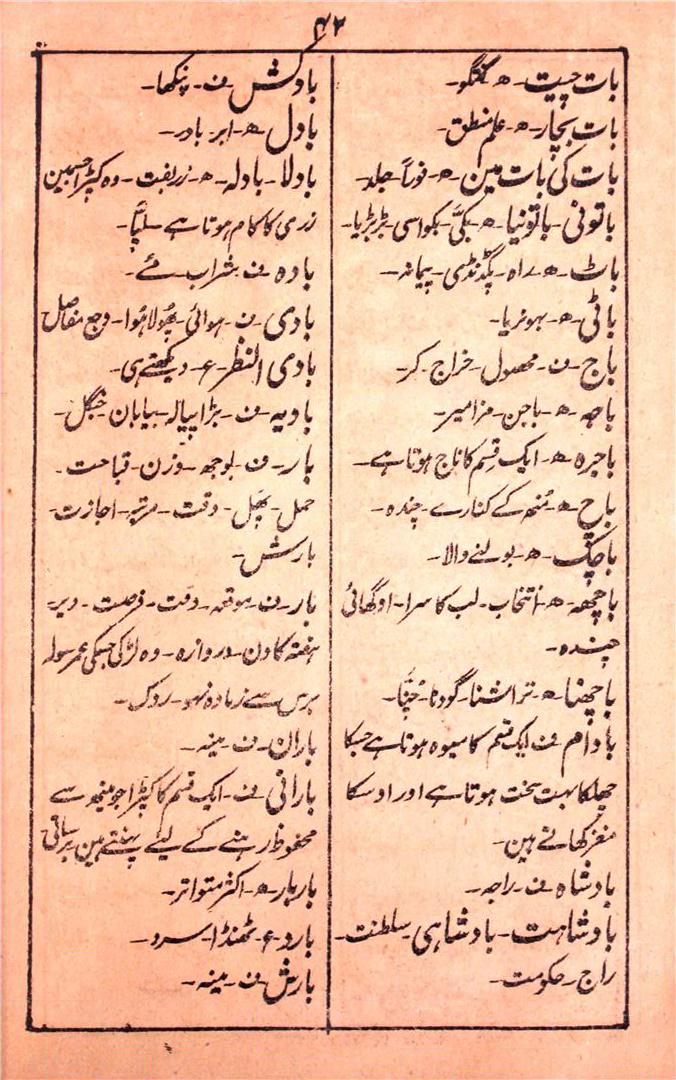 ۴۲
بات چیت - ھ - گفتگو -
بات بچار - ھ - علم منطق -
بات کی بات مین - ھ - فوراً - جلد -
باتونی - باتونیا - ھ - بکّی - بکواسی - بڑبڑیا -
باٹ - ھ - راہ - پگڈنڈی - پیمانہ -
باٹی - ھ - بھونریا -
باج - ف - محصول - خراج - کر -
باجہ - ھ - باجن - مزامیر -
باجرہ - ھ - ایک قسم کا ناج ہوتا ہے -
باچ - ھ - مُنھ کے کنارے - چندہ -
باچک - ھ - بولنے والا -
باچھہ - ھ - انتخاب - لب کا سرا - اوگھائی
چندہ -
باچھنا - ھ - تراشنا - گودنا - چُننا -
بادام - ف - ایک قسم کا میوہ ہوتا ہے جسکا
چھلکا بہت سخت ہوتا ہے اور اوسکا
مغز کھاتے ہین -
بادشاہ - ف - راجہ -
بادشاہت - بادشاہی - سلطنت -
راج - حکومت -
بادکش - ف - پنکھا -
بادل - ھ - ابر - بادر -
بادلا - بادلہ - ھ - زربفت - وہ کپڑا جسمین
زری کا کام ہوتا ہے -
بادہ - ف - شراب - مے -
بادی - ف - ہوائی - پھُولا ہُوا - وجع مفاصل
بادی النظر - ع - دیکھتے ہی -
بادیہ - ف - بڑا پیالہ - بیابان - جنگل -
بار - ف - بوجھ - وزن - قباحت -
حمل - پھل - وقت - مرتبہ - اجازت -
بارش -
بار - ف - موقعہ - وقت - فرصت - دیر -
ہفتہ کا دن - دروازہ - وہ لڑکی جسکی عمر سولہ
برس سے زیادہ نہو - روک -
باران - ف - مینہ -
بارانی - ف - ایک قسم کا کپڑا جو مینھ سے
محفوظ رہنے کے لیئے پہنتے ہین - برساتی
باربار - ھ - اکثر - متواتر -
بارد - ع - ٹھنڈا - سرد -
بارش - ف - مینہ -